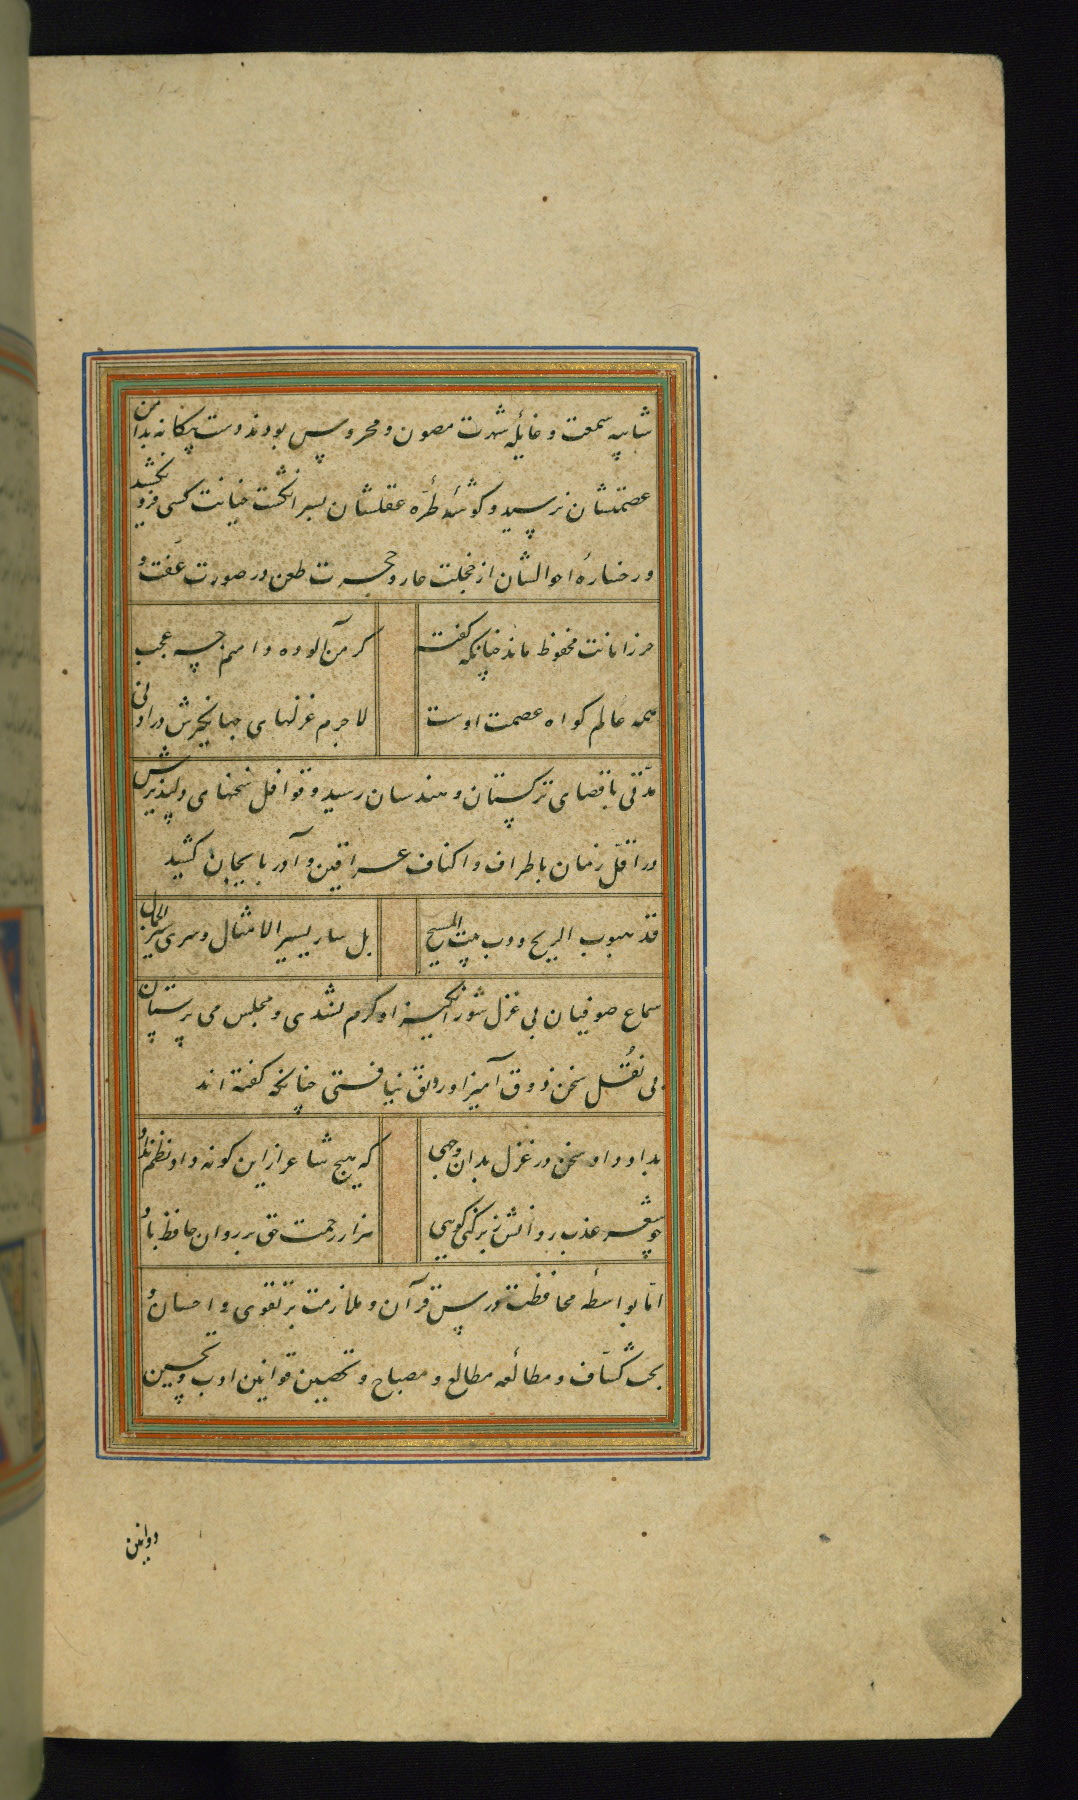 شایبه سمعت و غایلهٔ شهرت مصون و محروس بودند دست بیگانه بدامن
عصمتشان نرسید و گوشهٔ طرّه عقلشان بسر انگشت خیانت کسی فرو نکشید
و رخسارهٔ احوالشان از خجلت عار و حیرت طعن در صورت عفت و
حرز امانت محفوظ ماند چنانکه گفت
گر من آلوده دامنم چه عجب
همه عالم گواه عصمت اوست
لاجرم غزلهای جهانگیرش در ادنی
مدّتی باقصای ترکستان و هندسان رسید و قوافل سخنهای دلپذیرش
در اقلّ زمان باطراف و اکناف عراقین و آذربایجان کشید
قد هبوب الریح و دب دبیب المسیح
بل سار بسیر الامثال و سری سیر الخیال
سماع صوفیان بی غزل شورانگیز او گرم نشدی و مجلس می پرستان
بی نُقل سخن ذوق آمیز او رونق نیافتی چنانکه گفته اند
بداد داد سخن در غزل بدان وجهی
که هیچ شاعر ازین گونه داد نظم نداد
چو شعر عذب روانش ز بر کنی گویی
هزار رحمت حق بر روان حافظ باد
امّا بواسطهٔ محافظت درس قرآن و ملازمت بر تقوی و احسان و
بحث کشّاف و مطالعه مطالع و مصباح و تحصیل قوانین ادب و تحسین
دواوین